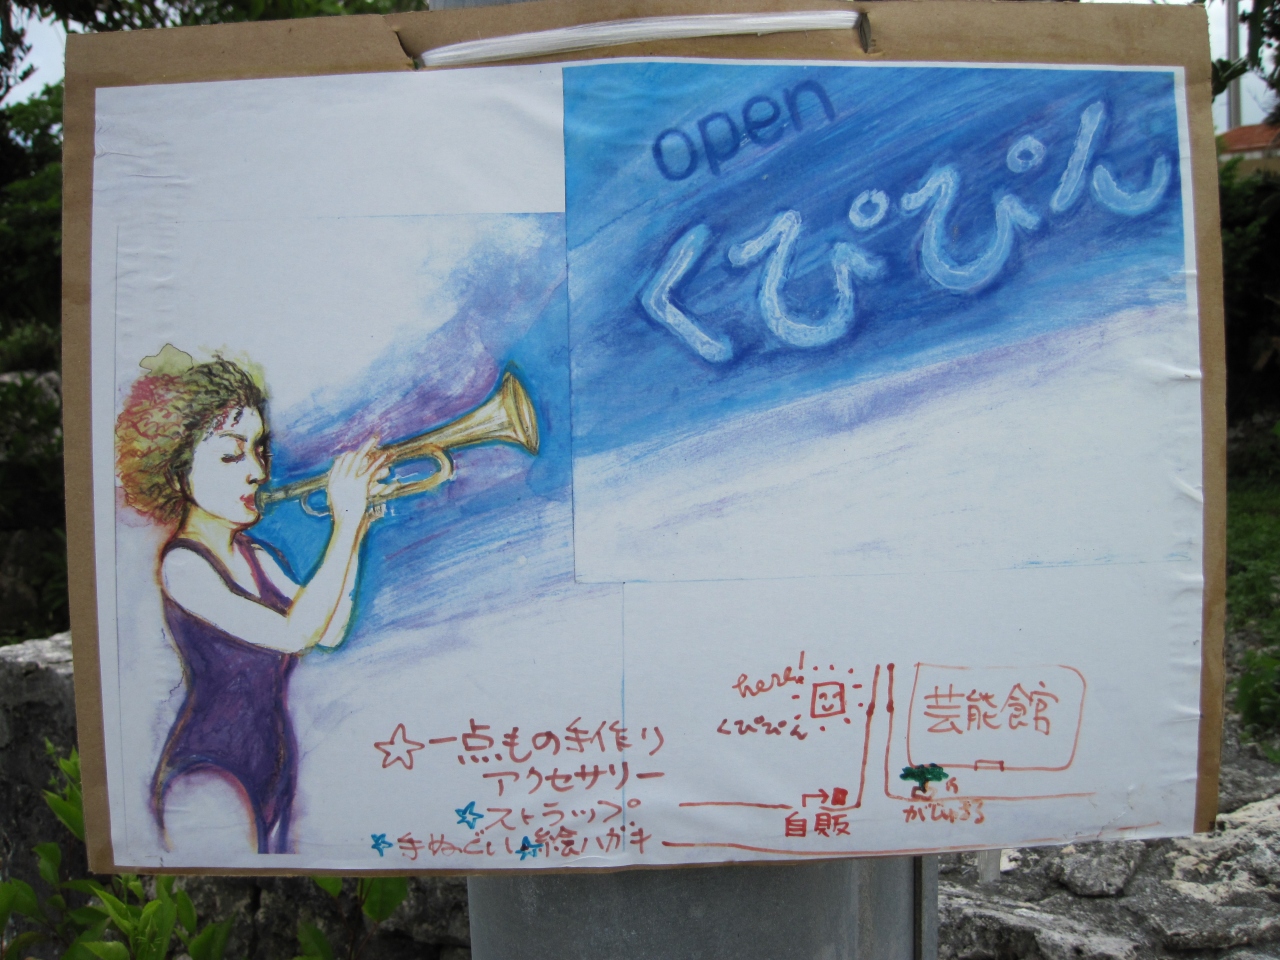 open
くぴぴん
☆一点もの手作り
アクセサリー
☆ストラップ
☆手ぬぐい☆絵ハガキ
here!
くぴぴん
芸能館
自販